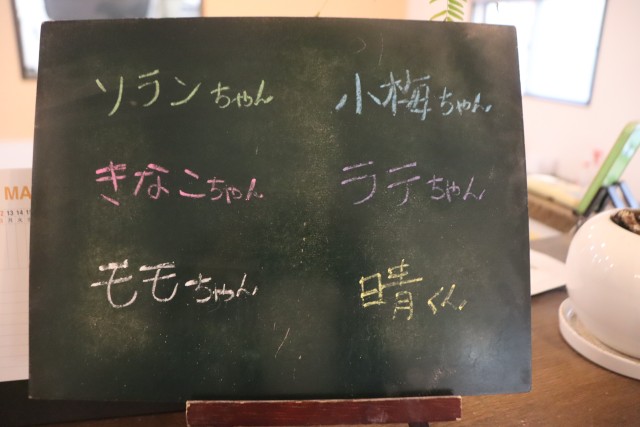 ソランちゃん
小梅ちゃん
きなこちゃん
ラテちゃん
モモちゃん
晴くん
MA
12 13 14 15